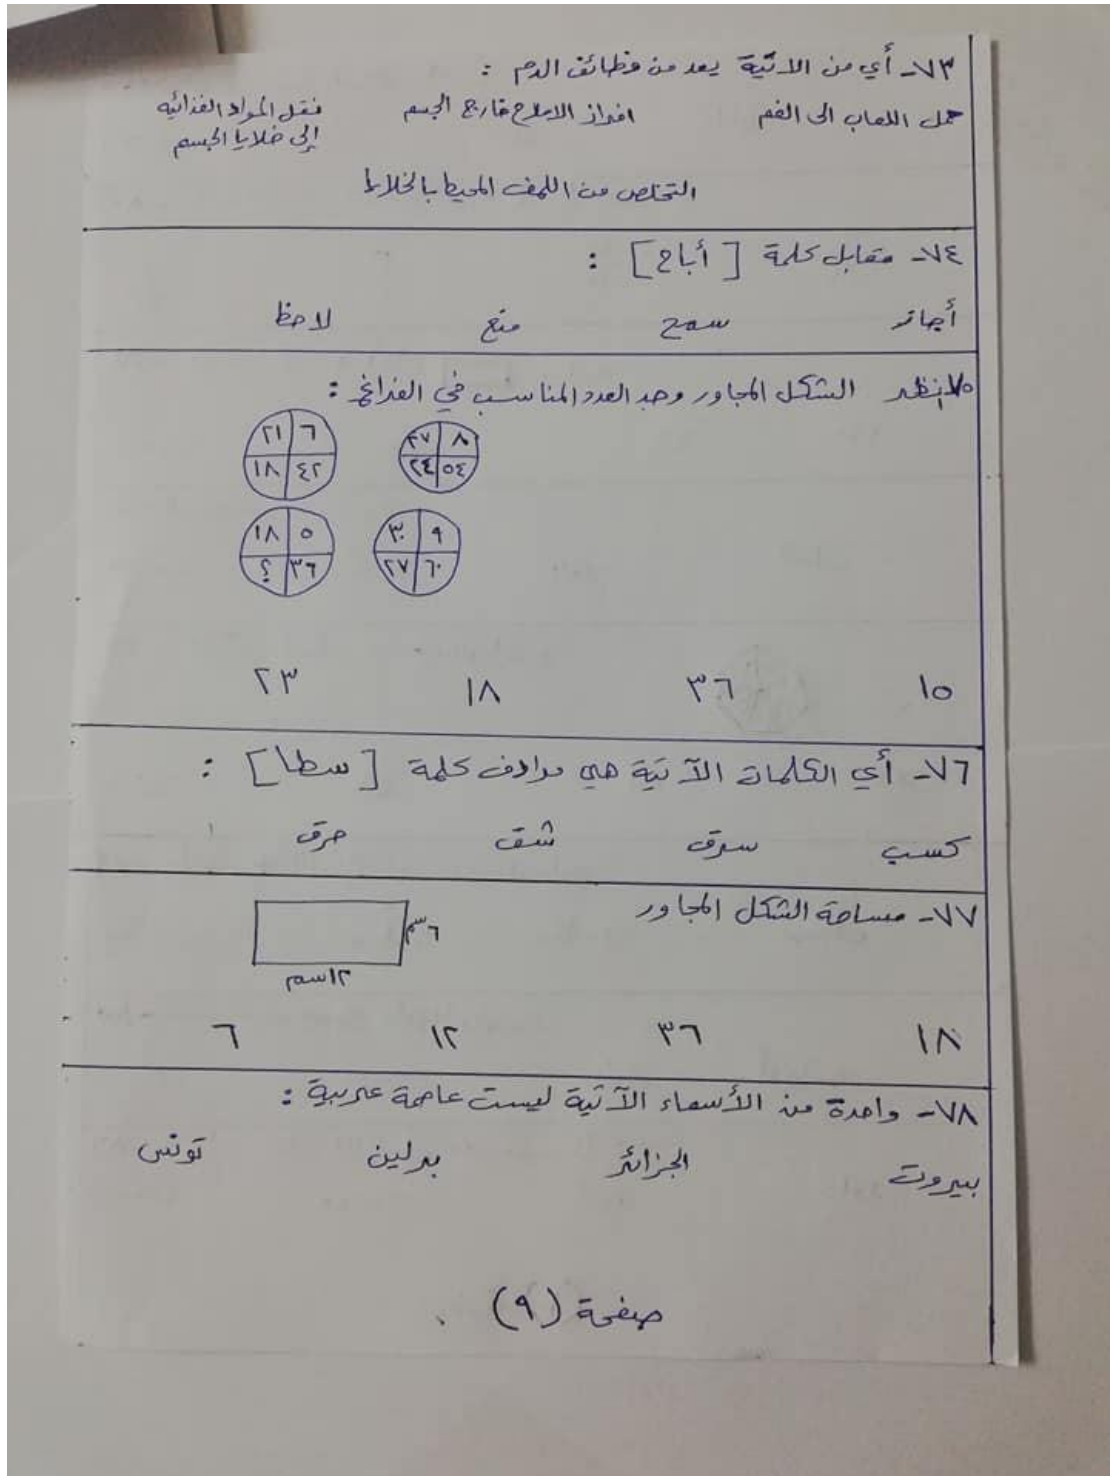 ٧٣- أي من الاتية يعد من وظائف الدم :
حمل اللعاب الى الفم    افراز الاملاح خارج الجسم    نقل المواد الغذائيه
إلى خلايا الجسم
التخلص من اللمف المحيط بالخلايا
٧٤- مقابل كلمة [ أباح ] :
أجاز    سمح    منع    لاحظ
٧٥- انظر الشكل المجاور وجد العدد المناسب في الفراغ :
٢١ ٦    ٢٧ ٨
١٨ ٤٢    ٢٤ ٥٤
١٨ ٥    ٣٠ ٩
؟ ٣٦    ٢٧ ٦٠
١٥    ٣٦    ١٨    ٢٣
٧٦- أي الكلمات الآتية هي مرادف كلمة [ سطا ] :
كسب    سرق    شق    حرق
٧٧- مساحة الشكل المجاور
٦سم
١٢سم
١٨    ٣٦    ١٢    ٦
٧٨- واحدة من الأسماء الآتية ليست عاصمة عربية :
بيروت    الجزائر    برلين    تونس
صفحة (٩)